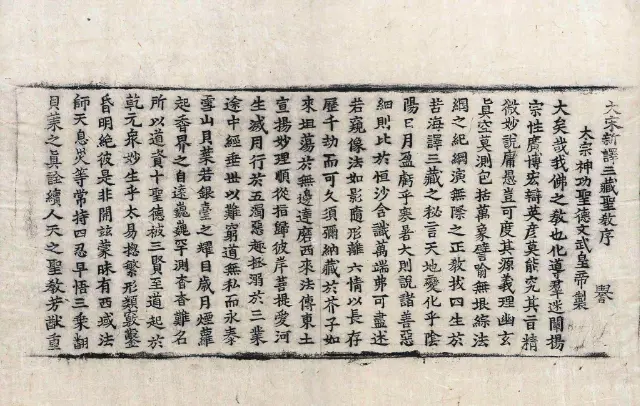 大宋新譯三藏聖教序
譽
太宗神功聖德文武皇帝製
大矣哉我佛之教也化導羣迷闡揚
宗性廣博宏辯英彦莫能究其旨精
微妙說庸愚豈可度其源義理幽玄
真空莫測包括萬象譬喻無垠綜法
網之紀綱演無際之正教拔四生於
苦海譯三藏之秘言天地變化乎陰
陽日月盈虧乎寒暑大則說諸善惡
細則比於恒沙含識萬端弗可盡述
若窺像法如影隨形離六情以長存
歷千劫而可久須彌納藏於芥子如
來坦蕩於無邊達磨西來法傳東土
宣揚妙理順從指歸彼岸菩提愛河
生滅用行於五濁惡趣拯溺於三業
途中經垂世以難窮道無私而永泰
雪山貝葉若銀臺之耀目歲月煙蘿
起香界之自遠巍巍罕測杳杳難名
所以道資十聖德被三賢至道起於
乾元衆妙生乎太易揔繁形類竅鑿
昏明絶彼是非開兹蒙昧有西域法
師天息災等常持四忍早悟三乘翻
貝葉之真詮續人天之聖教芳猷重